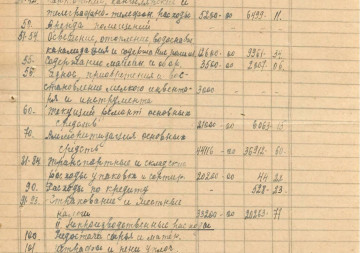 телеграфно-телефон. расходы 5200-00 6499. 11.
50. Аренда помещений
51-54. Освещение, отопление, водоснабж.
канализация и содержание помещ. 12600-00
55. Содержание машин и обор. 3500-00 2807. 06.
57. Износ, приобретения и вос-
становление мелкого инвента-
ря и инструмента 3000
60. Текущий ремонт основных
средств
70. Амортизация основных
средств 44116-00 36912-60
Транспортные и складск.
расходы упаковка и сортир. 20200-00 44 23
90. Расходы по кредиту 528-23.
Страхование и местные
налоги 33200-00
II. Непроизводственные расходы
100. Недостача сырья и матер.
101. Штрафы и пени уплоч.